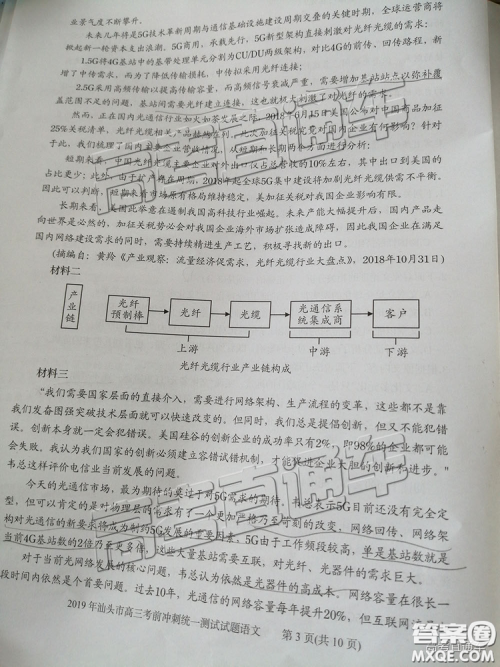 业景气度不断攀升。
未来几年将是5G技术革新周期与通信基础设施建设周期交叠的关键时期，全球运营商将
掀起新一轮资本支出浪潮。5G商用，承载先行，5G新型架构直接刺激对光纤光缆的需求：
1.5G将4G基站中的基带处理单元分割为CU/DU两级架构，对比4G的前传、回传路程，新
增了中传需求，而为了降低传输损耗，中传拟采用光纤连接；
2.5G采用高频传输以提高传输容量，而高频信号衰减严重，需要增加基站站点以弥补覆
盖范围不足的问题，基站间需要光纤建立连接，这也就极大刺激了对光纤的需求。
然而，正在国内光通信行业如火如荼发展之际，2018年6月15日美国公布对中国商品加征
25%关税清单，光纤光缆相关产品
加征关税究竟对国内企业有何影响？针对
于此，我们梳理了国内主要企业营收情况，从短期和长期两个方面进行分析：
短期来看，中国光纤光缆主要企业对外出口仅占总营收的10%左右，其中出口到美国的
占比更少；此外，由于扩产周期，2018年起全球5G集中建设将加剧光纤光缆供需不平衡。
因此可以判断，短期来看市场原有格局维持稳定，美加征关税对我国企业影响有限。
长期来看，美国此举意在遏制我国高科技行业崛起。未来产能大幅提升后，国内产品走
向世界是必然的，加征关税势必会对我国企业海外市场扩张造成障碍，因此我国企业在满足
国内网络建设需求的同时，需要持续精进生产工艺，积极寻找新的出口。
（摘编自：黄羚《产业观察：流量经济促需求，光纤光缆行业大盘点》，2018年10月31日）
材料二
产业链
光纤预制棒
光纤
光缆
光通信系统集成商
客户
上游
中游
下游
光纤光缆行业产业链构成
材料三
“我们需要国家层面的直接介入，需要进行网络架构、生产流程的变革，这些都不是靠
我们发奋图强突破技术层面就可以快速改变的。但同时，我们总是提倡创新，但又不能犯错
误。创新本身就一定会犯错误。美国硅谷的创新企业的成功率只有2%，即98%的企业都可能
会失败。我认为我们国家的创新必须建立容错试错机制，才能促进企业大胆的创新和进步。”
韦总这样评价电信业当前发展的问题。
今天的光通信市场，最为期待的莫过于对5G需求的期待，韦总表示5G目前还没有完全定
型，但可以肯定的是对物理层的要求有了一个更加严格乃至苛刻的改变，网络回传、网络架
构对光通信的新要求将成为制约5G发展的重要因素。5G由于工作频段较高，单是基站数就是
当前4G基站数的2倍乃至更多倍，这些大量基站需要互联，对光纤、光器件的需求巨大。
对于当前光网络发展的核心问题，韦总认为依然是光器件的高成本、网络容量在很长一
段时间内依然是个首要问题。过去10年，光通信的网络容量每年提升20%，但互联网
2019年汕头市高三考前冲刺统一测试试题语文 第3页(共10页)
高考直通车
答案圈
MXQE.COM